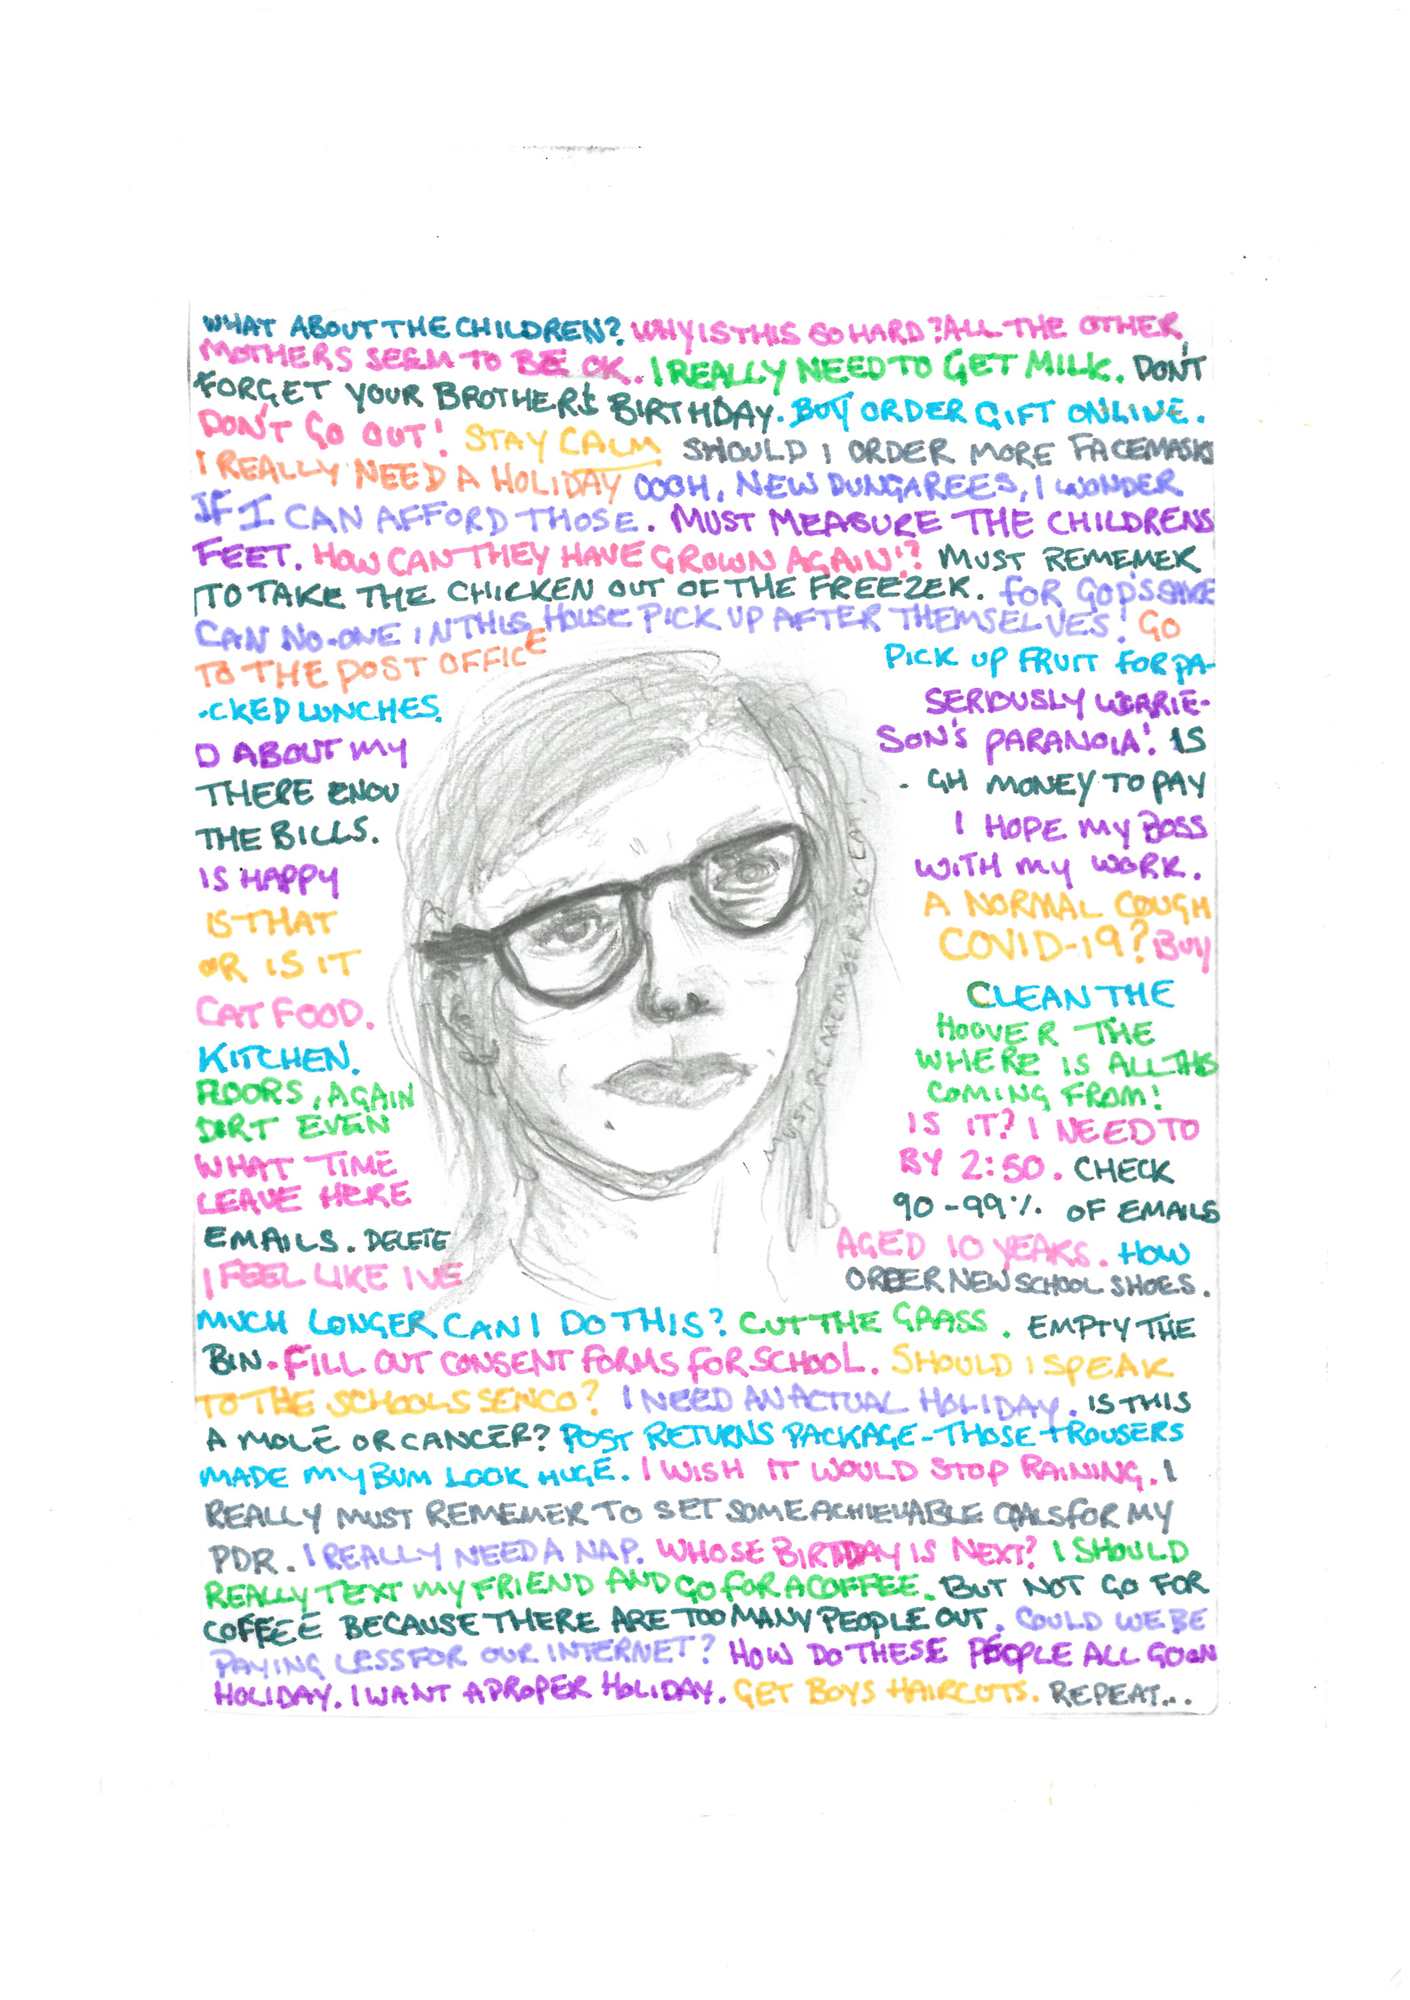 WHAT ABOUT THE CHILDREN? WHY IS THIS SO HARD? ALL THE OTHER
MOTHERS SEEM TO BE OK. I REALLY NEED TO GET MILK. DON'T
FORGET YOUR BROTHERS BIRTHDAY. BUY ORDER GIFT ONLINE.
DON'T GO OUT! STAY CALM SHOULD I ORDER MORE FACEMASKS
I REALLY NEED A HOLIDAY OOOH, NEW DUNGAREES, I WONDER
IF I CAN AFFORD THOSE. MUST MEASURE THE CHILDRENS
FEET. HOW CAN THEY HAVE GROWN AGAIN!? MUST REMEMER
TO TAKE THE CHICKEN OUT OF THE FREEZER. FOR GOD'S SAKE
CAN NO-ONE IN THIS HOUSE PICK UP AFTER THEMSELVES! GO
TO THE POST OFFICE
PICK UP FRUIT FOR PA-
-CKED LUNCHES.
SERIOUSLY WORRIE-
D ABOUT MY
SON'S PARANOIA! IS
THERE ENOU
- GH MONEY TO PAY
THE BILLS.
I HOPE MY BOSS
IS HAPPY
WITH MY WORK.
IS THAT
A NORMAL COUGH
OR IS IT
COVID-19? BUY
CAT FOOD.
CLEAN THE
KITCHEN.
HOOVER THE
FLOORS, AGAIN
WHERE IS ALL THIS
DIRT EVEN
COMING FROM!
WHAT TIME
IS IT? I NEED TO
LEAVE HERE
BY 2:50. CHECK
EMAILS. DELETE
90-99% OF EMAILS
I FEEL LIKE I'VE
AGED 10 YEARS. HOW
ORDER NEW SCHOOL SHOES.
I MUST REMEMBER TO EAT!
MUCH LONGER CAN I DO THIS? CUT THE GRASS. EMPTY THE
BIN. FILL OUT CONSENT FORMS FOR SCHOOL. SHOULD I SPEAK
TO THE SCHOOLS SENCO? I NEED AN ACTUAL HOLIDAY. IS THIS
A MOLE OR CANCER? POST RETURNS PACKAGE-THOSE TROUSERS
MADE MY BUM LOOK HUGE. I WISH IT WOULD STOP RAINING. I
REALLY MUST REMEMER TO SET SOME ACHIEVABLE GOALS FOR MY
PDR. I REALLY NEED A NAP. WHOSE BIRTDAY IS NEXT? I SHOULD
REALLY TEXT MY FRIEND AND GO FOR A COFFEE. BUT NOT GO FOR
COFFEE BECAUSE THERE ARE TOO MANY PEOPLE OUT. COULD WE BE
PAYING LESS FOR OUR INTERNET? HOW DO THESE PEOPLE ALL GO ON
HOLIDAY. I WANT A PROPER HOLIDAY. GET BOYS HAIRCUTS. REPEAT...